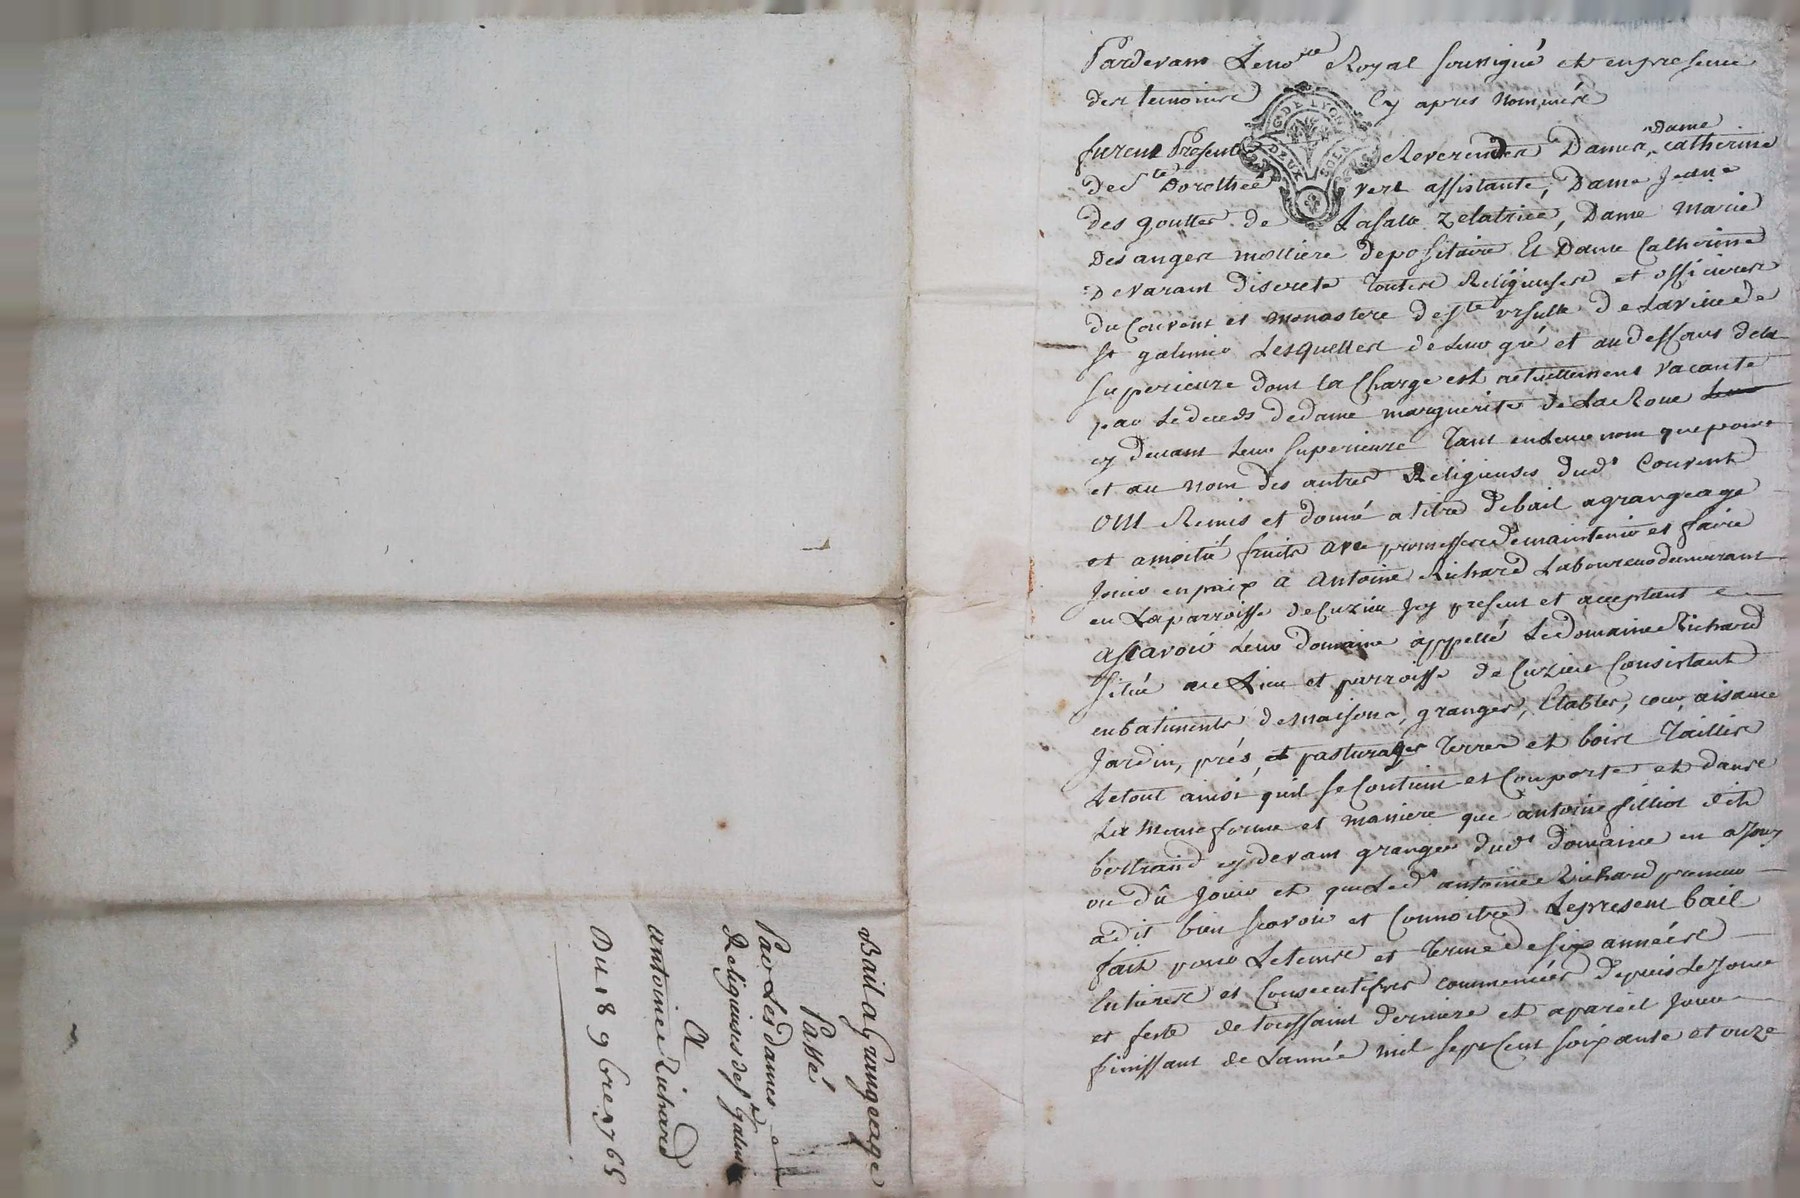 Bail a Grangeage
Passé
Par Les dames
Religieuses de St galmier
A
antoine Richard
Du 18 9bre 1765
Pardevant Le no.re Royal soussigné et en presence
des temoins Cy apres nommés
G. DE LYON
DEUX SOLS
furent Presentes Reverendes Dames, Dame catherine
de Ste Dorothée vere assistante, Dame Jeane
des gouttes de Lasalle Zelatrice, Dame Marie
Des anges molliere depositaire Et Dame Catherine
Devarant discrete Toutes Religieuses et officieres
du Couvent et monastere de Ste ursulle de La ville de
St galmier Lesquelles de Leur gré et au dessous de la
superieure dont la Charge est actuellement vacante
par Le deceds de dame marguerite de La Roue
cy devant Leur superieure Tant en Leur nom que pour
et au nom des autres Religieuses dud.t Couvent
ONt Remis et donné a titre de bail a grangeage
et a moitié fruits avec promesse de maintenir et faire
Jouir en paix a Antoine Richard Laboureur demeurant
en La parroisse de Cuzieu Icy present et acceptant
asçavoir Leur domaine appellé Le domaine Richard
situé au Lieu et parroisse de Cuzieu Consistant
en batiments de maisons, granges, Etables, cour, aisance
Jardin, prés, et pasturages Terres et bois Taillis
Le tout ainsi quil se Contient et Comporte et dans
La meme forme et maniere que antoine filliot dit
bertrand cy devant granger dud.t domaine en a Jouy
ou dû Jouir et que Led.t antoine Richard preneur
a dit bien scavoir et Connoitre Le present bail
fait pour Le tems et Terme de six années
Entieres et Consecutives commencées depuis Le Jour
et feste de toussaint derniere et a pareil Jour
finissant de L'année mil sept Cent soixante et onze